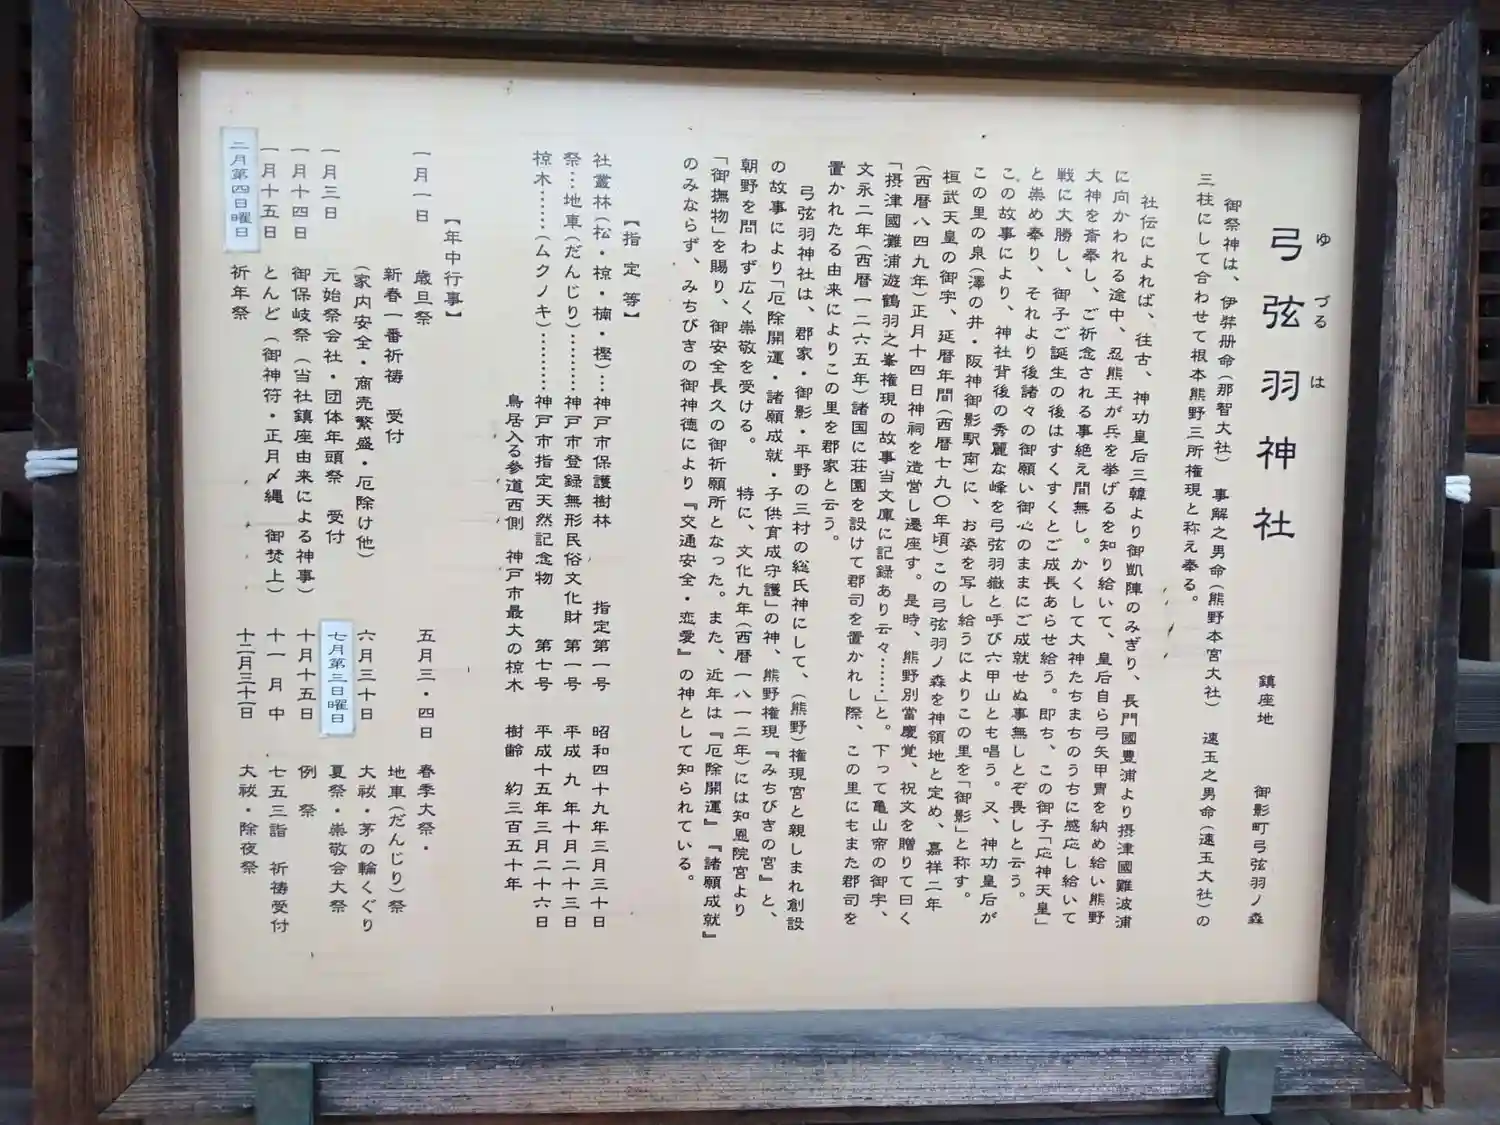 弓弦羽神社
ゆづるは
鎮座地　御影町弓弦羽ノ森
御祭神は、伊弉册命(那智大社)　事解之男命(熊野本宮大社)　速玉之男命(速玉大社)の
三柱にして合わせて根本熊野三所権現と称え奉る。
社伝によれば、往古、神功皇后三韓より御凱陣のみぎり、長門國豊浦より摂津國難波浦
に向かわれる途中、忍熊王が兵を挙げるを知り給いて、皇后自ら弓矢甲冑を納め給い熊野
大神を斎奉し、ご祈念される事絶え間無し。かくして大神たちまちのうちに感応し給いて
戦に大勝し、御子ご誕生の後はすくすくとご成長あらせ給う。即ち、この御子「応神天皇」
と崇め奉り、それより後諸々の御願い御心のままにご成就せぬ事無しとぞ畏しと云う。
この故事により、神社背後の秀麗な峰を弓弦羽嶽と呼び六甲山とも唱う。又、神功皇后が
この里の泉(澤の井・阪神御影駅南)に、お姿を写し給うによりこの里を「御影」と称す。
桓武天皇の御宇、延暦年間(西暦七九〇年頃)この弓弦羽ノ森を神領地と定め、嘉祥二年
(西暦八四九年)正月十四日神祠を造営し遷座す。是時、熊野別當慶覚、祝文を贈りて曰く
「摂津國灘浦遊鶴羽之峯権現の故事当文庫に記録あり云々……」と。下って亀山帝の御宇、
文永二年(西暦一二六五年)諸国に荘園を設けて郡司を置かれし際、この里にもまた郡司を
置かれたる由来によりこの里を郡家と云う。
弓弦羽神社は、郡家・御影・平野の三村の総氏神にして、(熊野)権現宮と親しまれ創設
の故事により「厄除開運・諸願成就・子供育成守護」の神、熊野権現『みちびきの宮』と、
朝野を問わず広く崇敬を受ける。　特に、文化九年(西暦一八一二年)には知恩院宮より
「御撫物」を賜り、御安全長久の御祈願所となった。また、近年は『厄除開運』『諸願成就』
のみならず、みちびきの御神徳により『交通安全・恋愛』の神として知られている。
【指定等】
社叢林(松・椋・楠・樫)…神戸市保護樹林　指定第一号　昭和四十九年三月三十日
祭…地車(だんじり)………神戸市登録無形民俗文化財　第一号　平成九年十月二十三日
椋木……(ムクノキ)………神戸市指定天然記念物　第七号　平成十五年三月二十六日
鳥居入る参道西側　神戸市最大の椋木　樹齢　約三百五十年
【年中行事】
一月一日　歳旦祭
新春一番祈祷　受付
(家内安全・商売繁盛・厄除け他)
一月三日　元始祭会社・団体年頭祭　受付
一月十四日　御保岐祭(当社鎮座由来による神事)
一月十五日　とんど(御神符・正月〆縄　御焚上)
二月第四日曜日　祈年祭
五月三・四日　春季大祭・
地車(だんじり)祭
六月三十日　大祓・茅の輪くぐり
七月第三日曜日　夏祭・崇敬会大祭
十月十五日　例祭
十一月中　七五三詣　祈祷受付
十二月三十一日　大祓・除夜祭